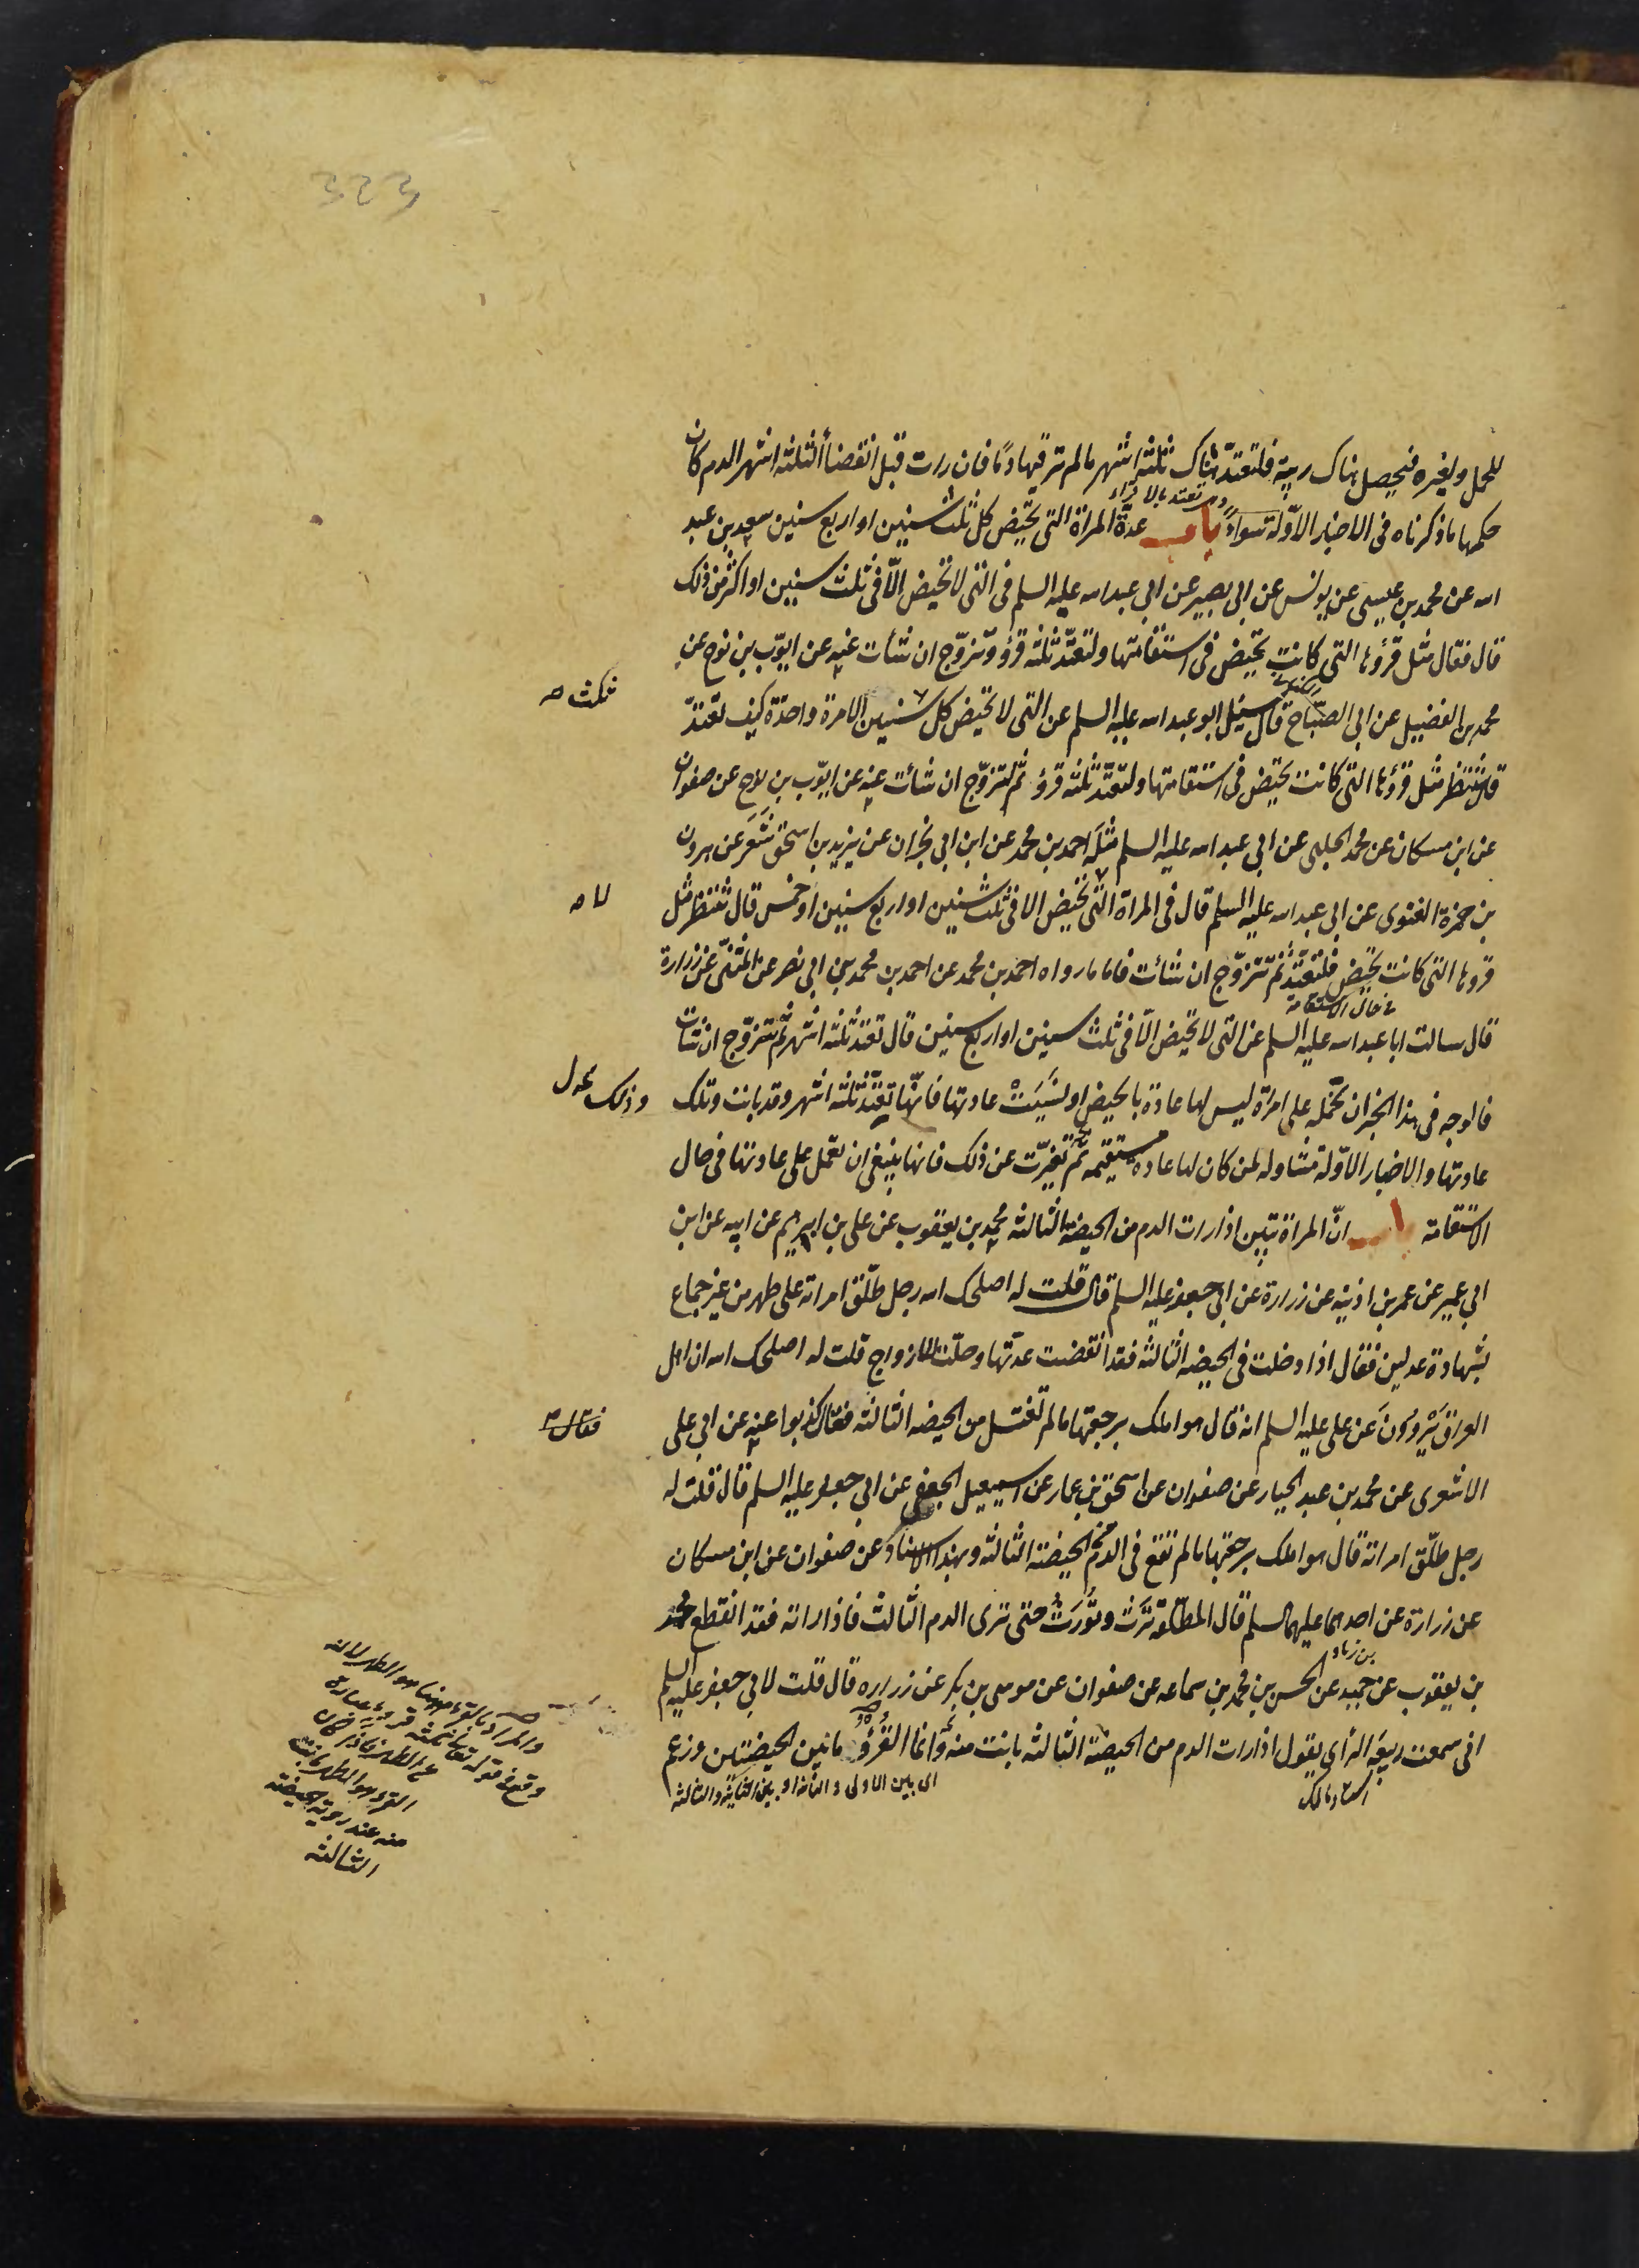 323
للحمل ولغيره فيحصل هناك ريبة فلتعتد هناك ثلثة اشهر ما لم تر فيها دما فان رات قبل انقضاء الثلثة اشهر الدم كان
حكمها ما ذكرناه فى الاخبار الاوّلة سواء وتعتد بالاقراء باب عدّة المراة التى تحيض كل ثلث سنين او اربع سنين سعد بن عبد
الله عن محمد بن عيسى عن يونس عن ابى بصير عن ابى عبد الله عليه السلم فى التى لا تحيض الّا فى ثلث سنين او اكثر من ذلك
قال فقال مثل قرؤها التى كانت تحيض فى استقامتها ولتعتدّ ثلثة قرؤ وتزوّج ان شاءت عنه عن ايوب بن نوح عن
محمد بن الفضيل عن ابى الصبّاح الكنانى قال سئل ابو عبد الله عليه السلم عن التى لا تحيض كل سنين الا مرة واحدة كيف تعتدّ
ثلث صح
قال تنتظر مثل قرؤها التى كانت تحيض فى استقامتها ولتعتدّ ثلثة قرؤ ثم لتزوّج ان شاءت عنه عن ايّوب بن نوح عن صفوان
عن ابن مسكان عن محمد الحلبى عن ابى عبد الله عليه السلم مثله احمد بن محمد عن ابن ابى نجران عن يزيد بن اسحق شَعَر عن هرون
بن حمزة الغنوى عن ابى عبد الله عليه السلم قال فى المراة التى تحيض الا فى ثلث سنين او اربع سنين او خمس قال تنتظر مثل
لا صح
قروها التى كانت تحيض فلتعتدّ ثم تتزوّج ان شاءت فاما ما رواه احمد بن محمد عن احمد بن محمد بن ابى نصر عن المثنّى عن زرارة
فى حال الاستقامة
قال سالت ابا عبد الله عليه السلم عن التى لا تحيض الّا فى ثلث سنين او اربع سنين قال تعتد ثلثة اشهر ثم تتزوّج ان شاءت
فالوجه فى هذا الخبر ان نحمله على امراة ليس لها عادة بالحيض او نَسِيَتْ عادتها فانّها تعتدّ ثلثة اشهر وقد بانت وتلك
وذلك
عادتها والاخبار الاوّلة متناوله لمن كان لها عادة مستقيمه ثم تغيّرت عن ذلك فانها ينبغى ان تعمل على عادتها فى حال
الاستقامة باب انّ المراة تبين اذا رات الدم من الحيضة الثالثه محمد بن يعقوب عن على بن ابرهيم عن ابيه عن ابن
ابى عمير عن عمر بن اذينه عن زرارة عن ابى جعفر عليه السلم قال قلت له اصلحك الله رجل طلّق امراته على طهر من غير جماع
بشهادة عدلين فقال اذا دخلت فى الحيضه الثالثه فقد انقضت عدّتها وحلّت للازواج قلت له اصلحك الله ان اهل
العراق يَرْوُونَ عن على عليه السلم انه قال هو املك برجعتها ما لم تغتسل من الحيضه الثالثه فقال كذبوا عنه عن ابى على
فقال
الاشعرى عن محمد بن عبد الجبار عن صفوان عن اسحق بن عمار عن اسمعيل الجعفى عن ابى جعفر عليه السلم قال قلت له
رجل طلّق امراته قال هو املك برجعتها ما لم تقع فى الدم من الحيضة الثالثه وبهذا الاسناد عن صفوان عن ابن مسكان
عن زرارة عن احدهما عليهما السلم قال المطلّقة تَرِث وتُورَث حتى ترى الدم الثالث فاذا راته فقد انقطع محمد
بن يعقوب عن حميد بن زياد عن الحسن بن محمد بن سماعه عن صفوان عن موسى بن بكر عن زراره قال قلت لابى جعفر عليه السلم
انى سمعت ربيعة الرأى يقول اذا رات الدم من الحيضة الثالثه بانت منه وانما القُرؤ ما بين الحيضتين وزعم
استاد مالك
اى بين الاولى والثانيه او بين الثانية والثالثه
والمراد بالقرؤ ههنا هو الطهر لانه
وقع فى قوله تعالى ثلثة قروء عبارة
عن الطهر فاذا كان
القرؤ هو الطهر بانت
منه عند رؤية الحيضة
الثالثه